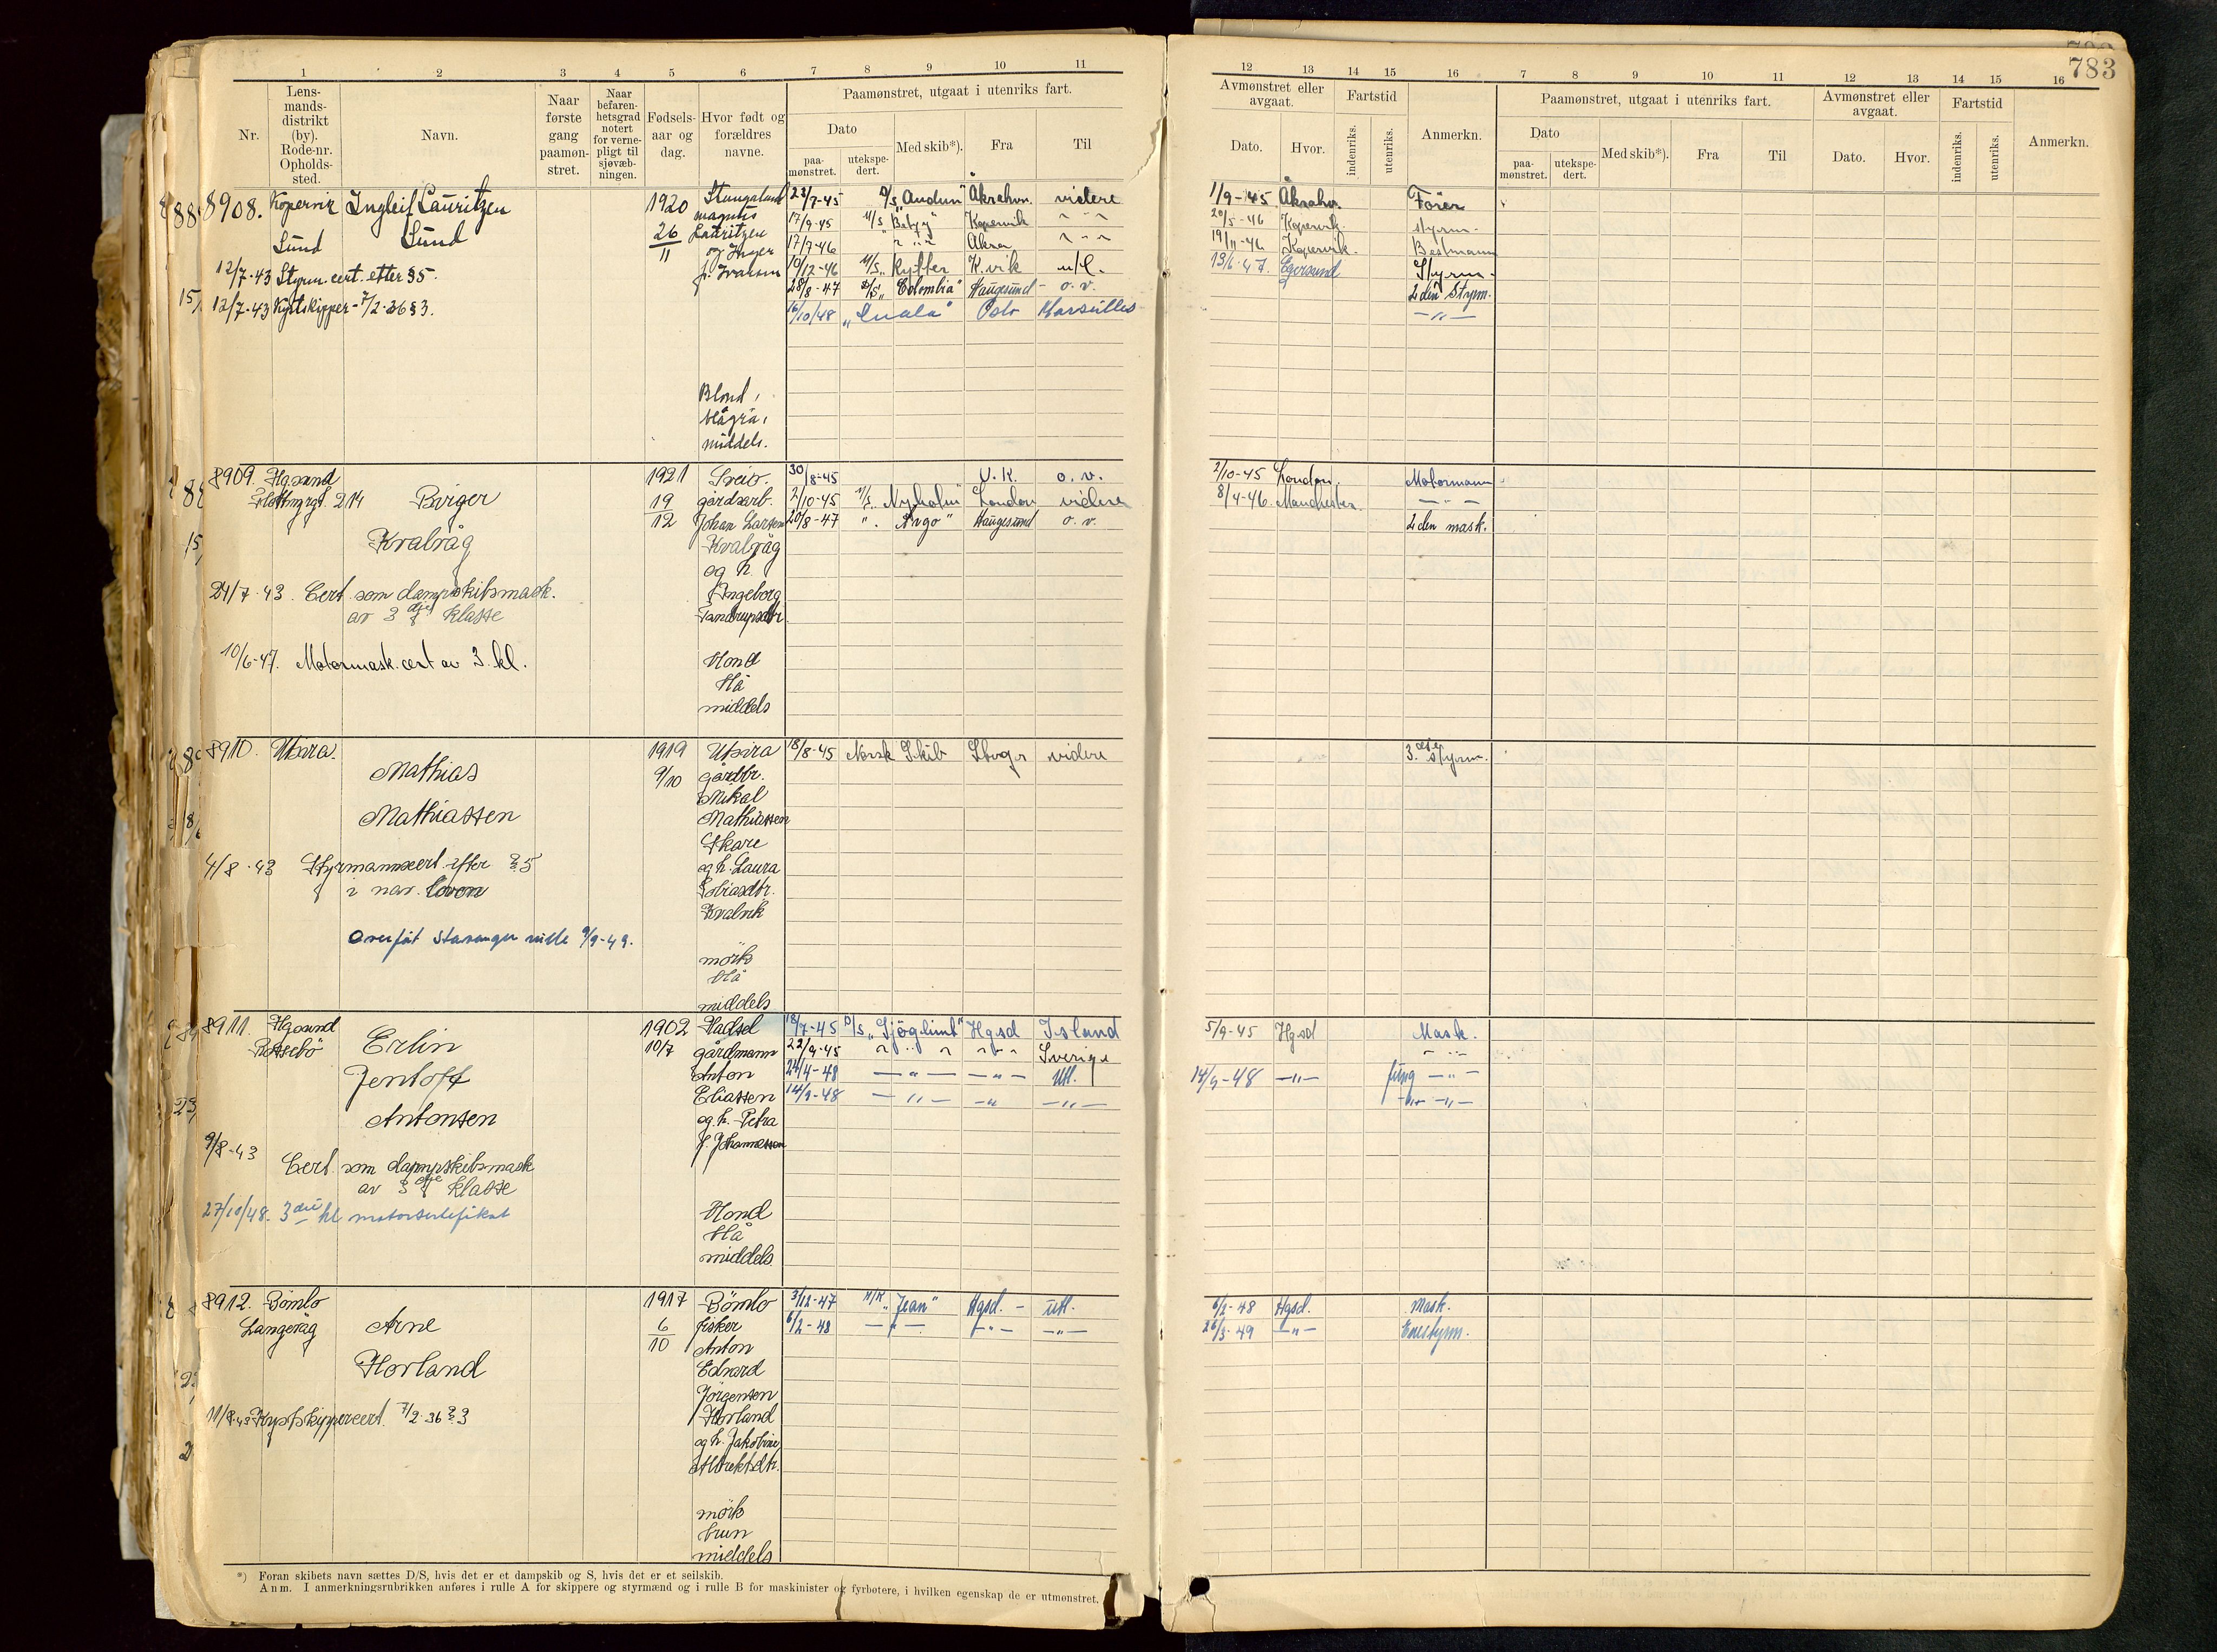 783
1 2 3 4 5 6 7 8 9 10 11
12 13 14 15 16 7 8 9 10 11 12 13 14 15 16
Nr.
Lens-
mands-
distrikt
(by).
Rode-nr.
Opholds-
sted.
Navn.
Naar
første
gang
paamøn-
stret.
Naar
befaren-
hetsgrad
notert
for verne-
pligt til
sjøvæb-
ningen.
Fødsels-
aar og
dag.
Hvor født og
forældres
navne.
Paamønstret, utgaat i utenriks fart.
Dato
paa-
mønstret.
utekspe-
dert.
Med skib*).
Fra
Til
Avmønstret eller
avgaat.
Dato.
Hvor.
Fartstid
indenriks.
utenriks.
Anmerkn.
Paamønstret, utgaat i utenriks fart.
Dato
paa-
mønstret.
utekspe-
dert.
Med skib*).
Fra
Til
Avmønstret eller
avgaat.
Dato.
Hvor.
Fartstid
indenriks.
utenriks.
Anmerkn.
8908. Kopervik Ingleif Lauritzen 1920 Stangaland 23/7-45 "Audun" Åkrahvn. videre 1/9-45 Åkrahvn. Fører
magnus 17/9-45 M/S Kopervik " " " 20/5-46 Kopervik. styrm.
Sund Sund 26/11 Lauritzen 17/7-46 " " " Åkra " " " 19/11-46 Kopervik. Bestmann
og Inger 19/12-46 M/S "Rytter K.vik u/l. 13/6-47. Egersund Styrm.
12/7-43 Styrm. cert. etter §5. f. Ivarsen 28/8-47 "Colombia" Haugesund - o.v. 2den Styrm.
12/7-43 Kystskipper - 7/2-36 §3. 16/10/48 Oslo Marseilles -"-
Blond,
blågrå,
middels.
8909. Hgsund 1921 Sveio. 30/8-45 U.K. o.v. 2/10-45 London. Motormann
214 Birger 19 gårdarb. 2/10-45 M/S "Nyholm" London videre 8/4-46. Manchester. - " -
12 Johan Larsen 20/8-47 " . "Argo" Haugesund o.v. 2den mask.
Kvalvåg Kvalvåg
og h.
24/7-43. Cert. som dampskibsmask. Ingeborg
av 3dje klasse
10/6-47. Motormask. cert av 3. kl. blond
blå
middels
8910. Utsira. 1919 Utsira 18/8-45 Norsk Skib Stvgr videre 3.dje styrm.
Mathias 9/10 gårdbr.
Mikal
Mathiassen Mathiassen
Skare
4/8-43 Styrmannscert. efter §5 og h. Laura
i nav. loven Tobiasdtr.
Kvalvik
Overført Stavanger rulle 9/9-49.
mörk
blå
middels
8911. Hgsund 1902. Hadsel 18/7-45 D/S "Sjöglimt" Hgsd Island 5/9-45 Hgsd Mask.
Røssebö Erlin 10/7 gårdmann 22/9-45 " " " " " " Sverige " " "
Jentoft Anton 24/4-48 - " - - " - Utl. 14/9-48 -"- fung - " -
Eliassen 14/9-48 - " - -" -"- -"- -"-
Antonsen og h. Petra
f. Johannessen
9/8-43
Cert. som dampskibsmask
av 3dje klasse
27/10/48. 3die kl motorsertifikat blond
blå
middels
8912. Bömlo 1917 Bömlo 3/12-47 M/K "Jean" Hgsd. - utl. 6/2-48 Hgsd. Mask.
Langevåg Arne 6/10 fisker 6/2-48 - " - - " - -"- 26/3-49 -"- Enestyrm.
Anton
Horland Edvard
Jörgensen
11/8-43 Kystskippercert. 7/2-36 §3 Horland
og h. Jakobine
mörk
brun
middels
*) Foran skibets navn sættes D/S, hvis det er et dampskib og S, hvis det er et seilskib.
Anm. I anmerkningsrubrikken anføres i rulle A for skippere og styrmænd og i rulle B for maskinister og fyrbøtere, i hvilken egenskap de er utmønstret.